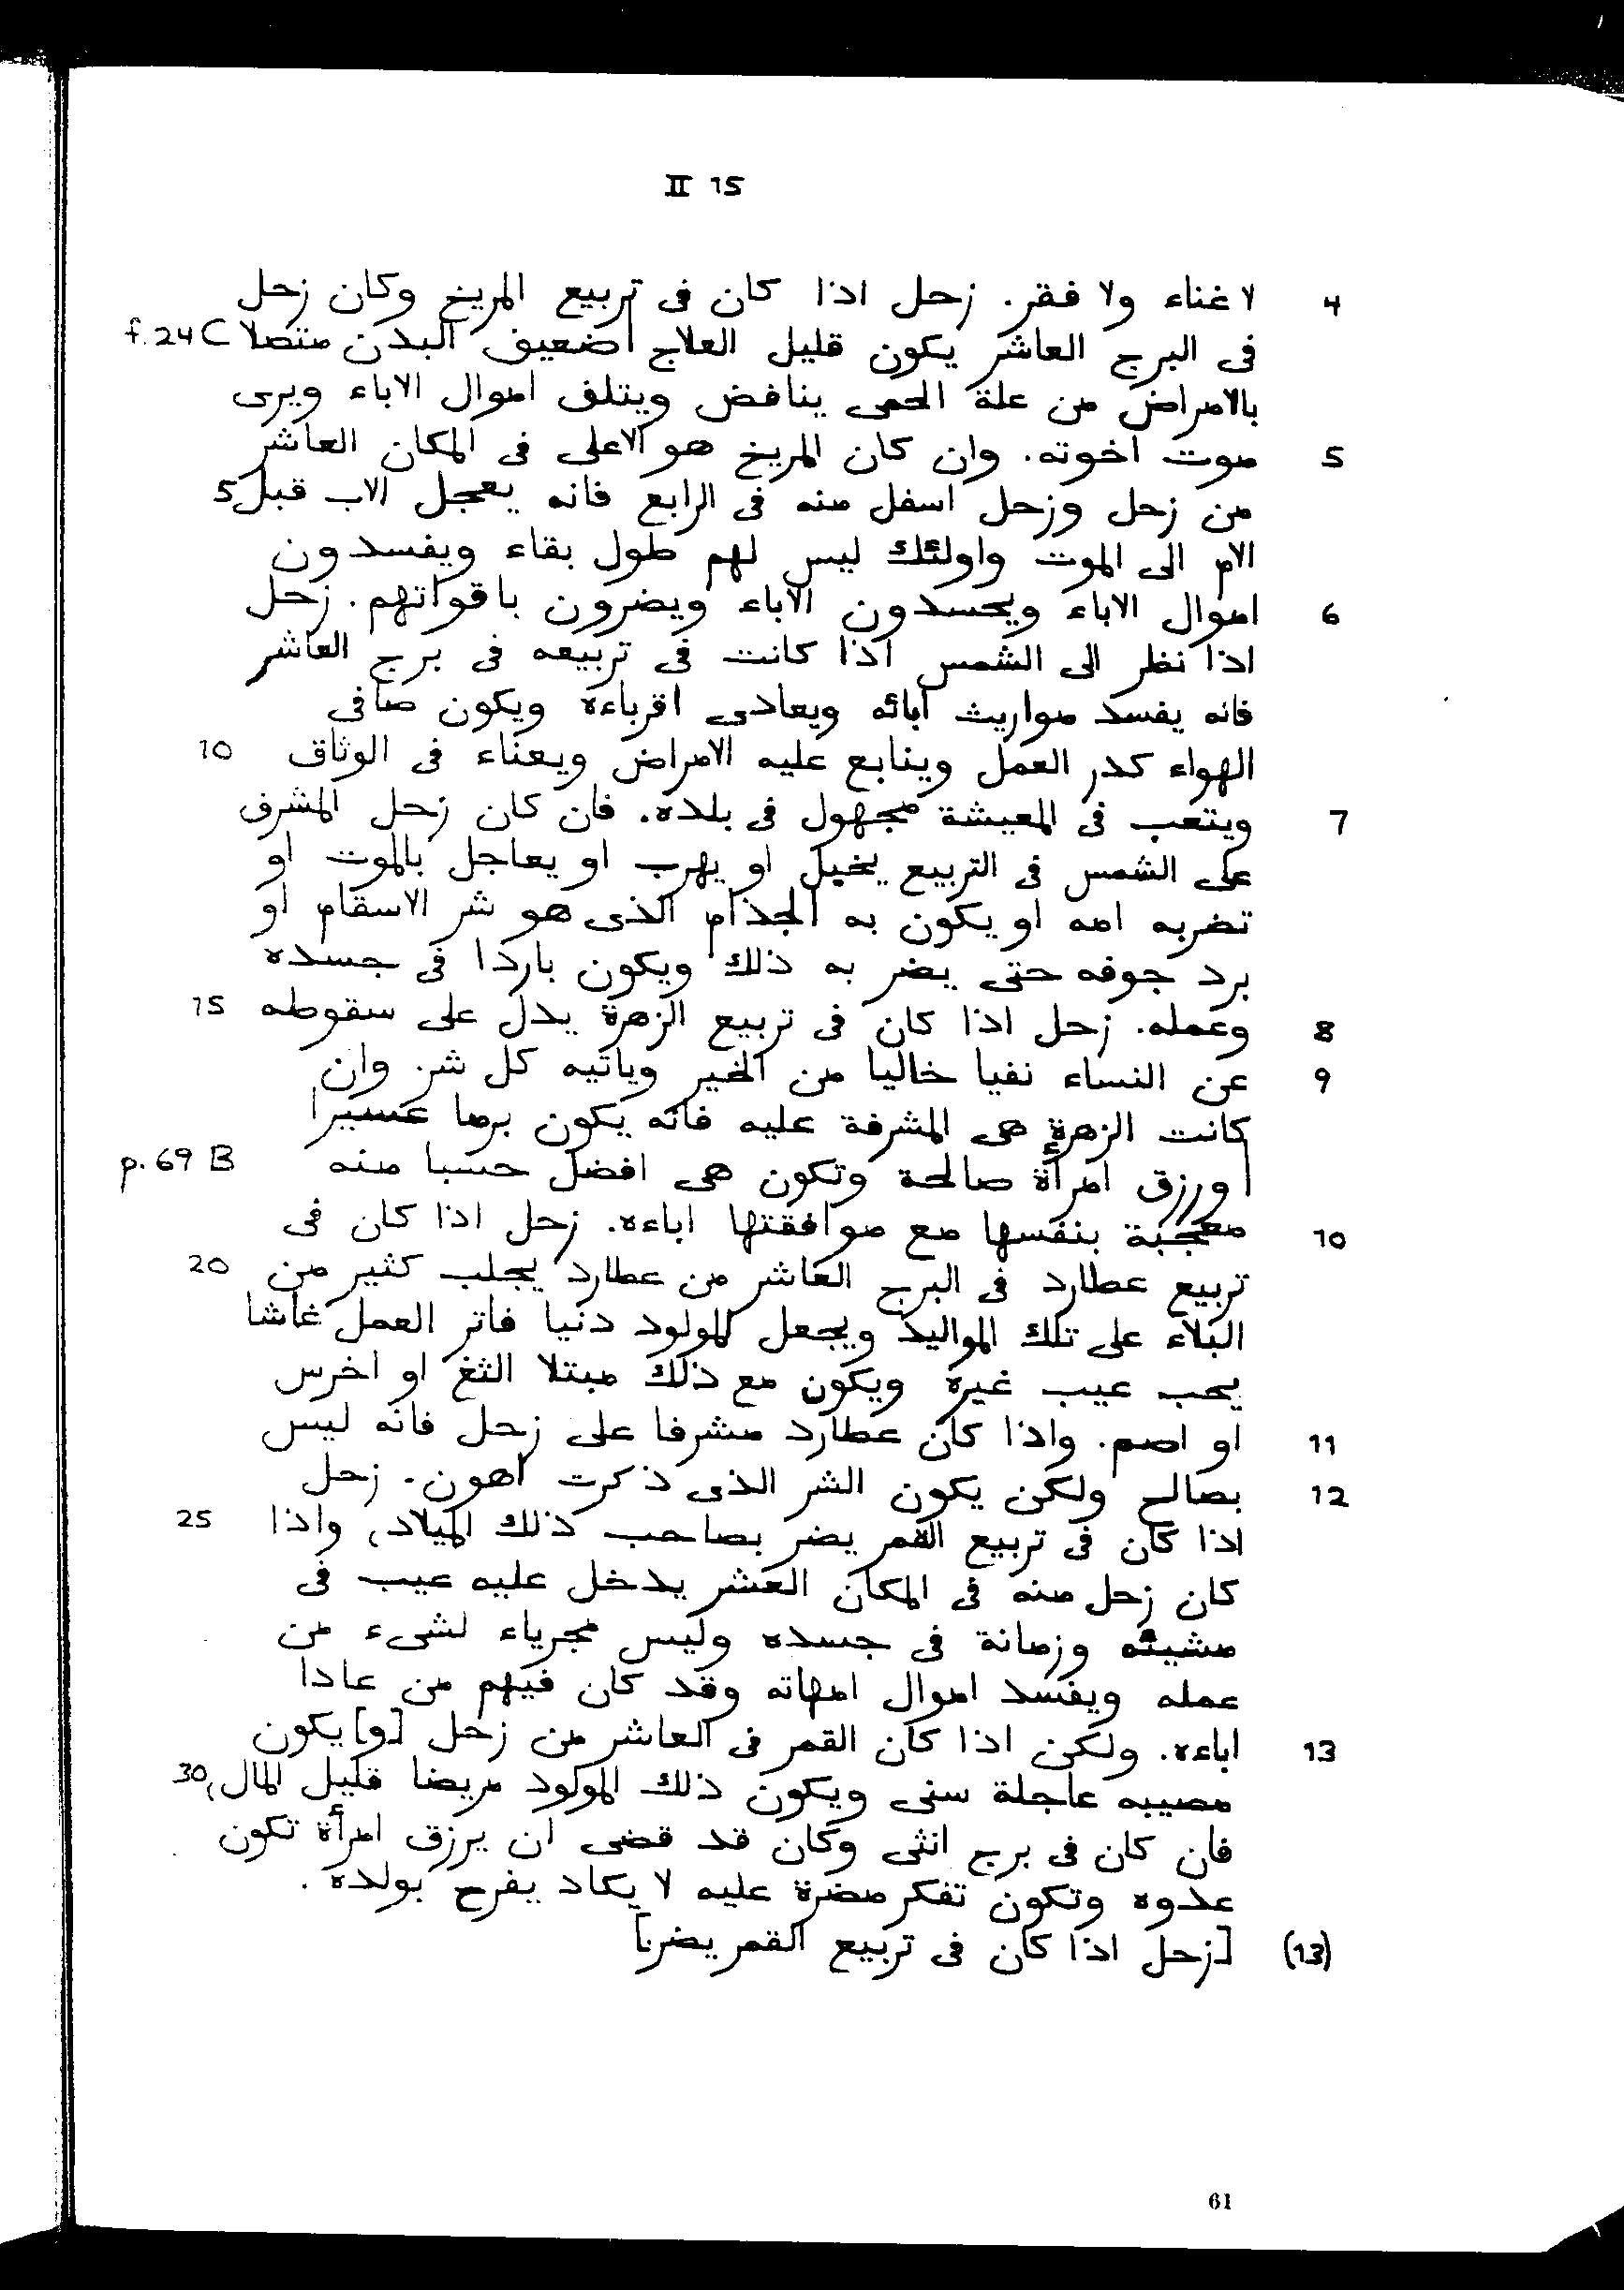 II 15
4 لا غناء ولا فقر. زحل اذا كان فى تربيع المريخ وكان زحل
فى البرج العاشر يكون قليل العلاج | ضعيف البدن متصلا f. 24 C
بالامراض من علة الحمى ينافض ويتلف اموال الاباء ويرى
5 موت اخوته. وان كان المريخ هو الاعلى فى المكان العاشر
من زحل وزحل اسفل منه فى الرابع فانه يعجل الاب قبل 5
الام الى الموت واولئك ليس لهم طول بقاء ويفسدون
6 اموال الاباء ويحسدون الاباء ويضرون باقواتهم. زحل
اذا نظر الى الشمس اذا كانت فى تربيعه فى برج العاشر
فانه يفسد مواريث ابائه ويعادى اقرباءه ويكون صافى
الهواء كدر العمل وينابع عليه الامراض ويعناء فى الوثاق 10
7 ويتعب فى المعيشة مجهول فى بلده. فان كان زحل المشرف
على الشمس فى التربيع يخيل او يهرب او يعاجل بالموت او
تضربه امه او يكون به الجذام الذى هو شر الاسقام او
برد جوفه حتى يضر به ذلك ويكون باردا فى جسده
8 وعمله. زحل اذا كان فى تربيع الزهرة يدل على سقوطه 15
9 عن النساء نفيا خاليا من الخير وياتيه كل شر. وان
كانت الزهرة هى المشرفة عليه فانه يكون برما عسيرا
| ورزق امرأة صالحة وتكون هى افضل حسبا منه p. 69 B
10 معجبة بنفسها مع موافقتها اباءه. زحل اذا كان فى
تربيع عطارد فى البرج العاشر من عطارد يجلب كثير من 20
البلاء على تلك المواليد ويجعل المولود دنيا فاتر العمل غاشا
يحب عيب غيره ويكون مع ذلك مبتلا الثغ او اخرس
11 او اصم. واذا كان عطارد مشرفا على زحل فانه ليس
12 بصالح ولكن يكون الشر الذى ذكرت اهون. زحل
اذا كان فى تربيع القمر يضر بصاحب ذلك الميلاد، واذا 25
كان زحل منه فى المكان العشر يدخل عليه عيب فى
مشيئه وزمانة فى جسده وليس مجرياء لشىء من
عمله ويفسد اموال امهاته وقد كان فيهم من عادا
13 اباءه. ولكن اذا كان القمر فى العاشر من زحل [و]يكون
مصيبه عاجلة سنى ويكون ذلك المولود مريضا قليل المال، 30
فان كان فى برج انثى وكان قد قضى ان يرزق امرأة تكون
عدوه وتكون تفكر مضرة عليه لا يكاد يفرح بولده.
(13) [زحل اذا كان فى تربيع القمر يضر]
61